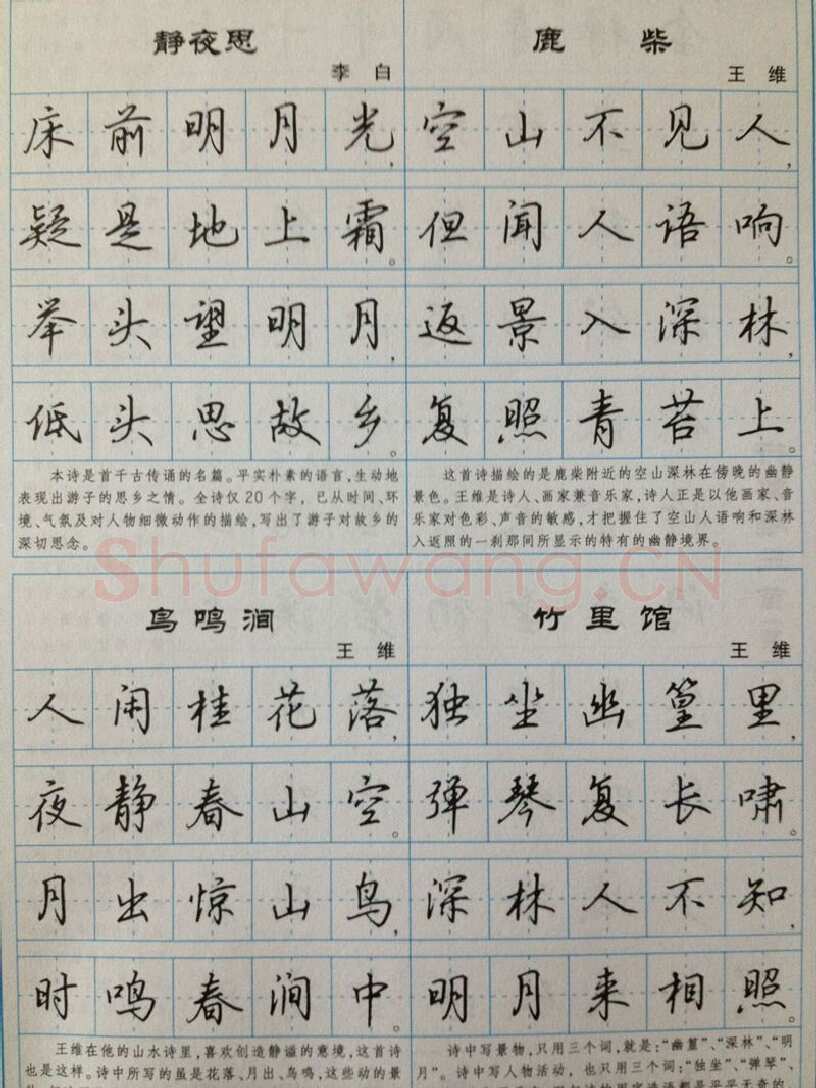 静夜思
李 白
床前明月光,
疑是地上霜。
举头望明月,
低头思故乡。
本诗是首千古传诵的名篇。平实朴素的语言,生动地
表现出游子的思乡之情。全诗仅20个字,已从时间、环
境、气氛及对人物细微动作的描绘,写出了游子对故乡的
深切思念。
鹿 柴
王 维
空山不见人,
但闻人语响。
返景入深林,
复照青苔上。
这首诗描绘的是鹿柴附近的空山深林在傍晚的幽静
景色。王维是诗人、画家兼音乐家,诗人正是以他画家、音
乐家对色彩、声音的敏感,才把握住了空山人语响和深林
入返照的一刹那间所显示的特有的幽静境界。
Shufawang.CN
鸟鸣涧
王 维
人闲桂花落,
夜静春山空。
月出惊山鸟,
时鸣春涧中。
王维在他的山水诗里,喜欢创造静谧的意境,这首诗
也是这样。诗中所写的虽是花落、月出、鸟鸣,这些动的景
竹里馆
王 维
独坐幽篁里,
弹琴复长啸。
深林人不知,
明月来相照。
诗中写景物,只用三个词,就是:“幽篁”、“深林”、“明
月”。诗中写人物活动,也只用三个词:“独坐”、“弹琴”、